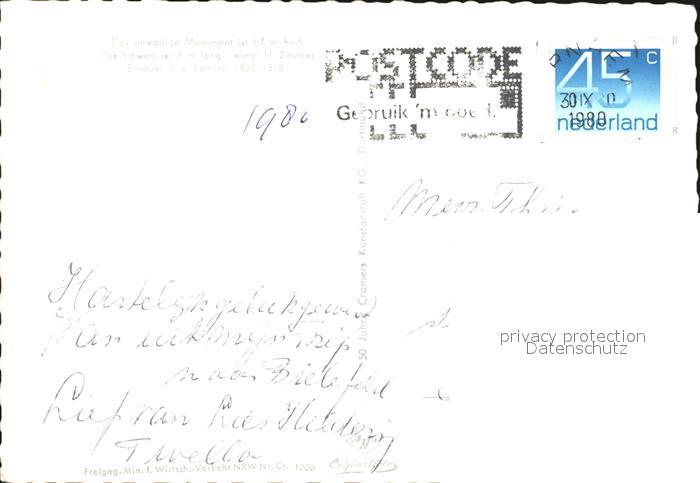 Das gewaltige Monument ist 57 m hoch
Das Schwert ist 7 m lang, wiegt 11 Zentner
Erbauer E. v. Bandel 1838-1875
POSTCODE
Gebruik 'm goed.
45 C
nederland
30 IX
1980
1980
50 Jahre Cramers Kunstanstalt KG. Dortmund
Mevr.
Hartelijk gelukgewenst
Van uit mijn trip
naar Bielefeld
Lies
Twello
privacy protection
Datenschutz
Freigeg. Min. f. Wirtsch.-Verkehr NRW Nr. Cr. 1006